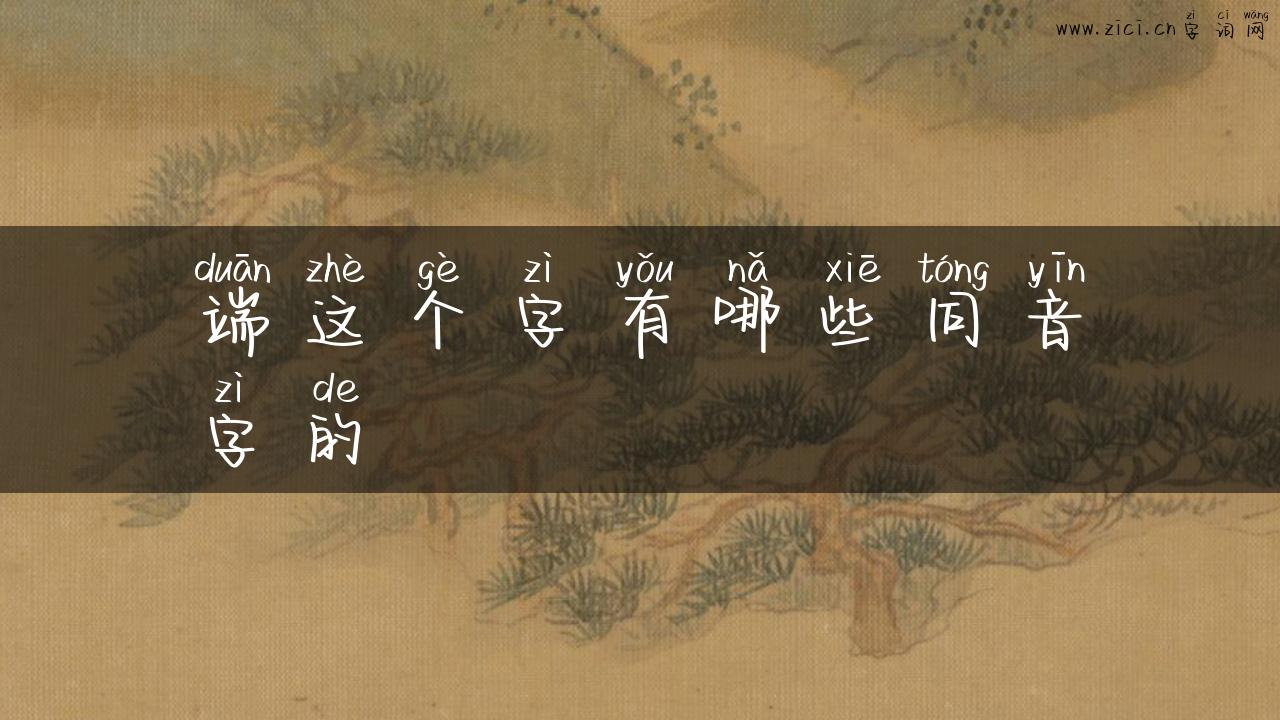 zì cí wǎng
www.zici.cn 字词网
duān zhè gè zì yǒu nǎ xiē tóng yīn
端这个字有哪些同音
zì de
字的